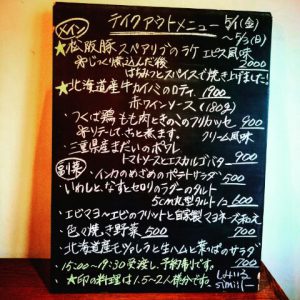 メイン
テイクアウトメニュー 5/1(金)
~5/3(日)
★松阪豚スペアリブのラケ エピス風味
じっくり煮込んだ後 2000
はちみつとスパイスで焼き上げました!
★北海道産牛カイノミのロティ 1900
赤ワインソース(180g)
・つくば鶏もも肉ときのこのフリカッセ 900
ソテーして、さっと煮ます。 クリーム風味
・三重県産まだいのポワレ
トマトソースとエスカルゴバター 900
副菜
・インカのめざめのポテトサラダ 500
・いわしと、なすとセロリのラグーのタルト
5cm丸型タルト 600
・エビマヨ〜エビのフリットと自家製マヨネーズ和え 700
・色々焼き野菜 500
・北海道産モッツァレラと生ハムと葉っぱのサラダ 700
・15:00~19:30受渡し、予約制です。
★印の料理は1.5~2人様分です。